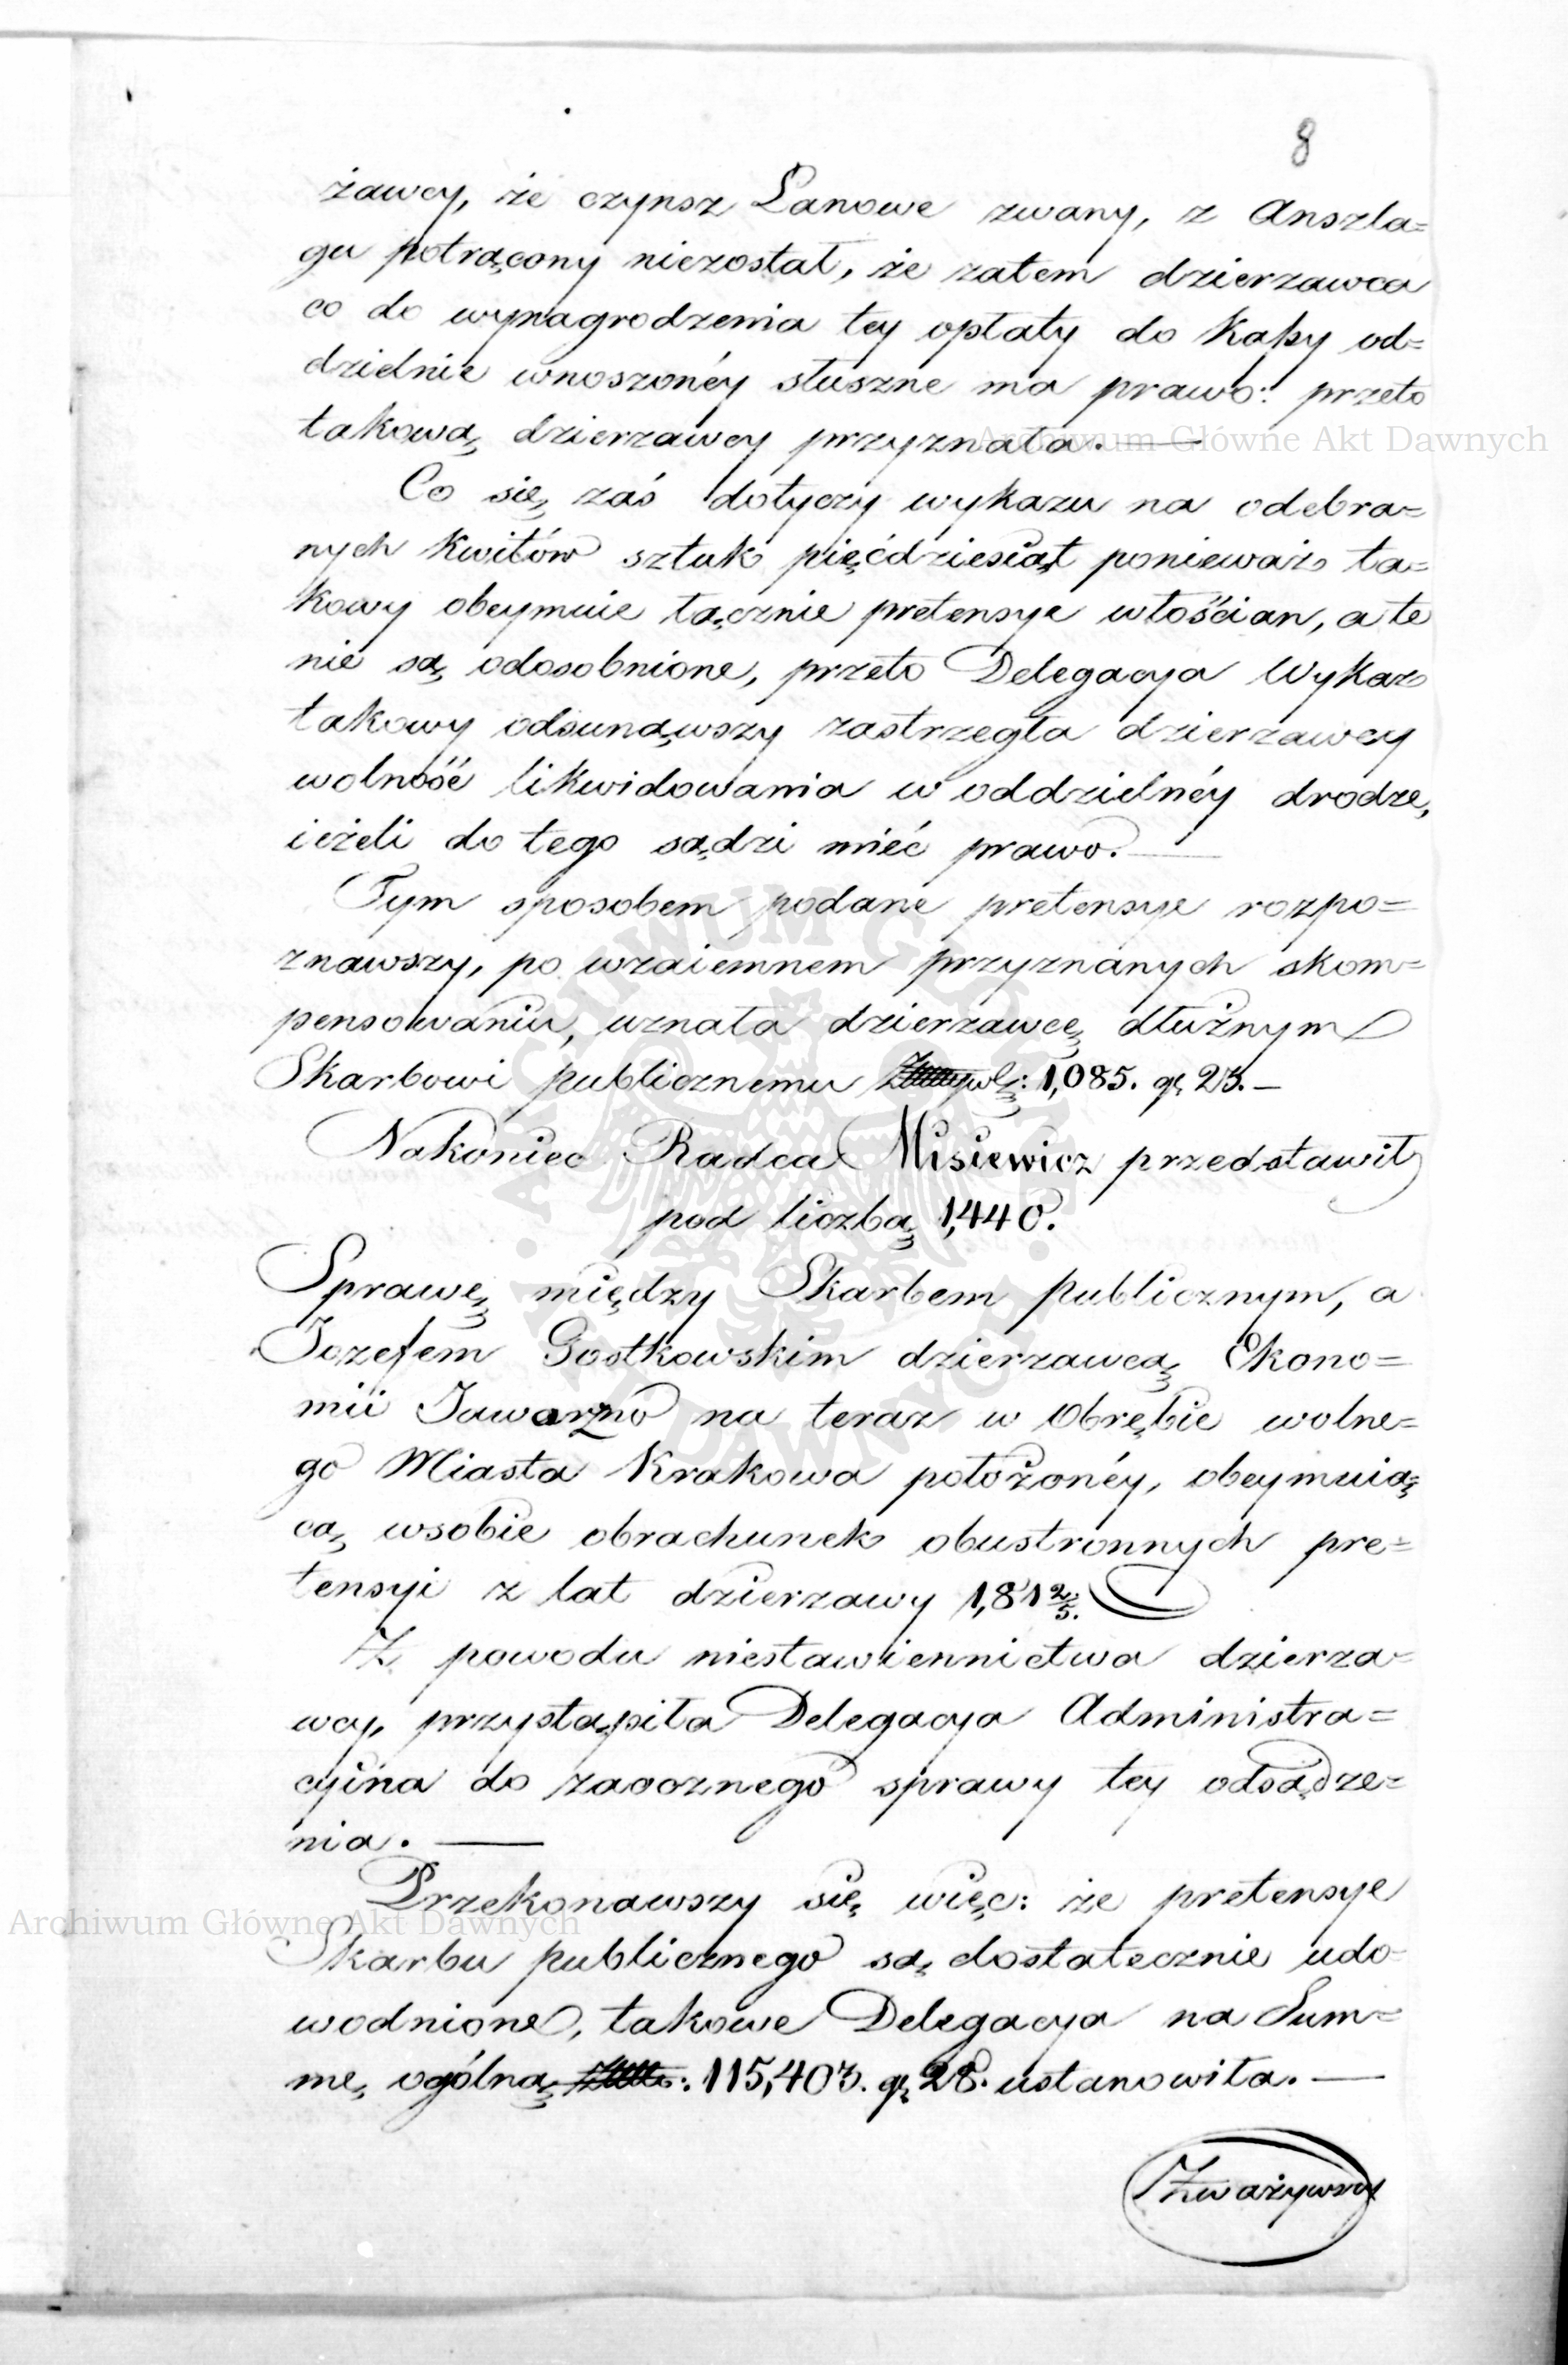 8
żawcy, że czynsz Łanowe zwany, z Anszla=
gu potrącony niezostał, że zatem dzierzawca
co do wynagrodzenia tey opłaty do Kaſsy od=
dzielnie wnoszonéy słuszne ma prawo: przeto
takową dzierzawcy przyznała. —
Co się zaś dotyczy wykazu na odebra=
nych Kwitów sztuk pięćdziesiąt ponieważ ta=
kowy obeymuie łącznie pretensye włościan, a te
nie są odosobnione, przeto Delegacya Wykaz
takowy odsunąwszy zastrzegła dzierzawcy
wolność likwidowania w oddzielnéy drodze,
ieżeli do tego sądzi mieć prawo. —
Tym sposobem podane pretensye rozpo=
znawszy, po wzaiemnem przyznanych skom=
pensowaniu, uznała dzierzawcę dłużnym
Skarbowi publicznemu : 1,085. gr 23. —
Nakoniec Radca Misiewicz przedstawił
pod liczbą 1,440.
Sprawę między Skarbem publicznym, a
Jozefem Gostkowskim dzierzawcą Ekono=
mii Jaworzno na teraz w Obrębie wolne=
go Miasta Krakowa położonéy, obeymuią=
cą wsobie obrachunek obustronnych pre=
tensyi z lat dzierzawy 1,81 2/5.
Z powodu niestawiennictwa dzierza=
wcy, przystąpiła Delegacya Administra=
cyina do zaocznego sprawy tey odsądze=
nia. —
Przekonawszy się więc: że pretensye
Skarbu publicznego są dostatecznie udo=
wodnione, takowe Delegacya na Sum=
mę ogólną : 115,403. gr 28. ustanowiła. —
Zważywszy
Archiwum Główne Akt Dawnych
Archiwum Główne Akt Dawnych
ARCHIWUM GŁÓWNE AKT DAWNYCH